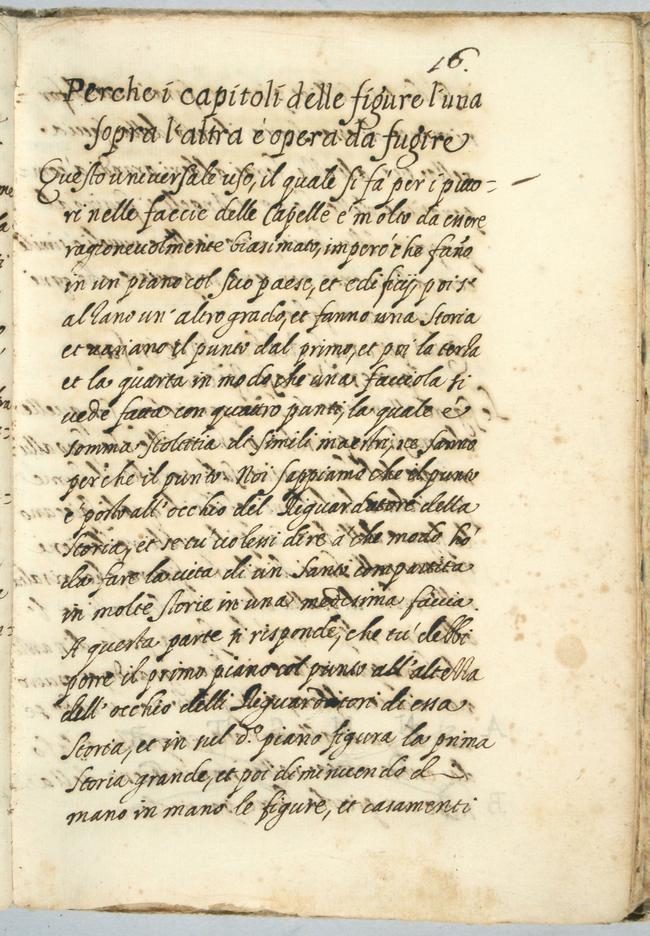 16.
Perche i capitoli delle figure l'una
sopra l'altra è opera da fugire
Questo universale uso, il quale si fà per i pitto=
ri nelle faccie delle Capelle è molto da essere
ragionevolmente biasimato, imperò che fano
in un piano col suo paese, et edificij, poi s'
alzano un' altro grado, et fanno una storia
et variano il punto dal primo, et poi la terza
et la quarta in modo che una facciola si
vede fatta con quattro punti, la quale é
somma stoltitia di simili maestri,
perche il punto Noi sappiamo che il punto
è posto all'occhio del Riguardatore della
storia, et se tu volessi dire à che modo hò
da fare la vita di un Santo compartita
in molte storie in una medesima faccia.
A questa parte ti rispondo, che tu debbi
porre il primo piano col punto all'altezza
dell' occhio delli Riguardatori di essa
storia, et in sul d.º piano figura la prima
storia grande, et poi diminuendo di
mano in mano le figure, et casamenti